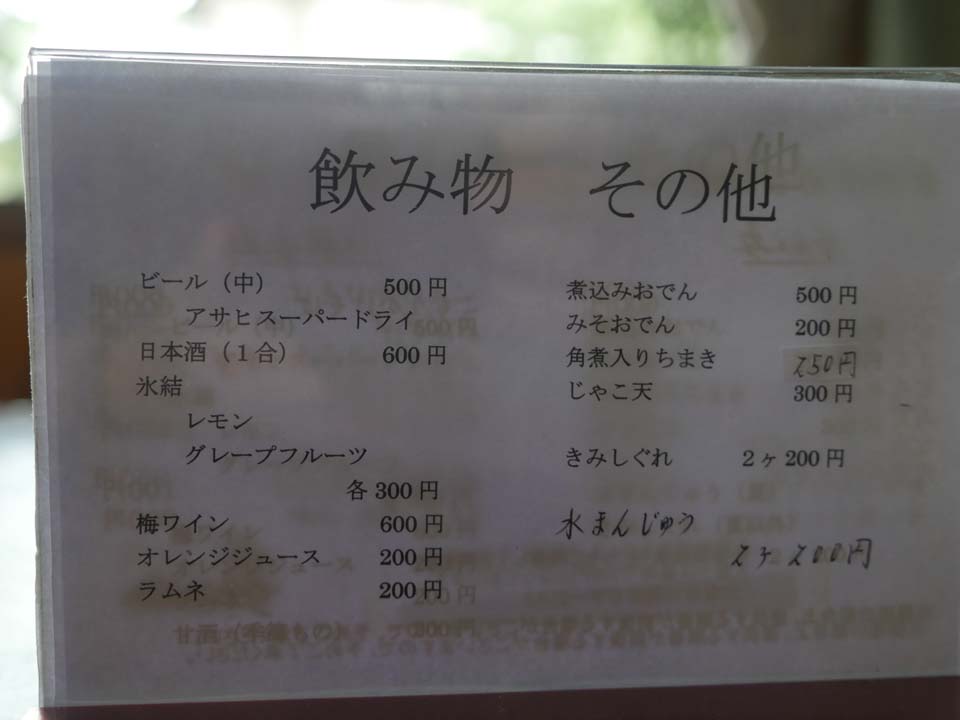 飲み物　その他
ビール（中）　500円
アサヒスーパードライ
日本酒（１合）　600円
氷結
レモン
グレープフルーツ
各300円
梅ワイン　600円
オレンジジュース　200円
ラムネ　200円
煮込みおでん　500円
みそおでん　200円
角煮入りちまき　250円
じゃこ天　300円
きみしぐれ　２ヶ200円
水まんじゅう
2ヶ 200円